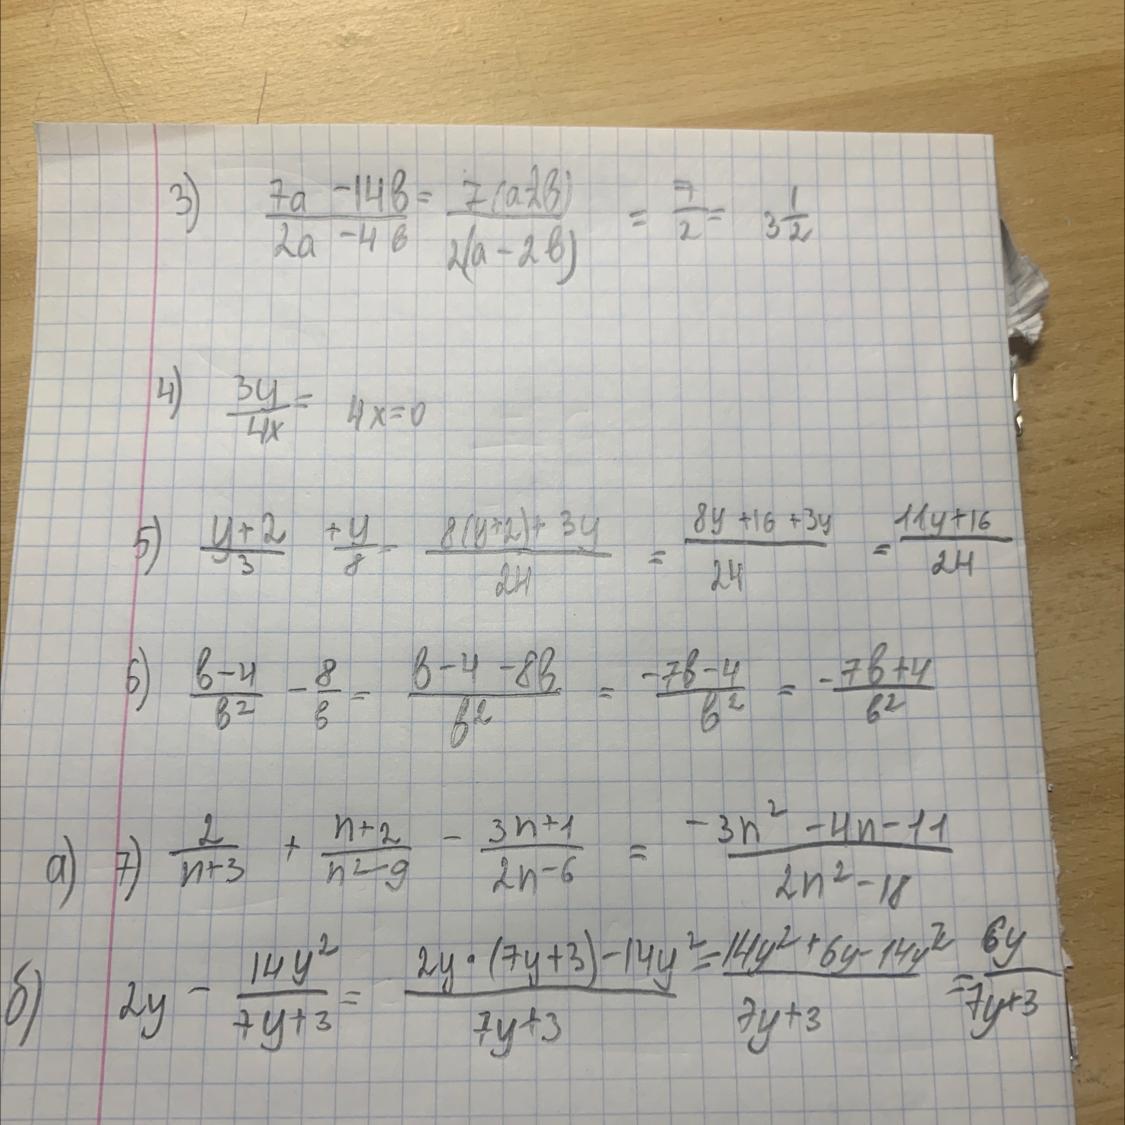 3) (7a - 14b)/(2a - 4b) = 7(a-2b)/2(a - 2b) = 7/2 = 3 1/2
4) 3y/4x = 4x = 0
5) (y+2)/3 + y/8 = (8(y+2) + 3y)/24 = (8y + 16 + 3y)/24 = (11y + 16)/24
6) (b - 4)/b² - 8/b = (b - 4 - 8b)/b² = (-7b - 4)/b² = - (7b + 4)/b²
a) 7) 2/(n+3) + (n+2)/(n² - 9) - (3n+1)/(2n - 6) = (-3n² - 4n - 11)/(2n² - 18)
б) 2y - 14y²/(7y + 3) = (2y · (7y + 3) - 14y²)/(7y + 3) = (14y² + 6y - 14y²)/(7y + 3) = 6y/(7y + 3)